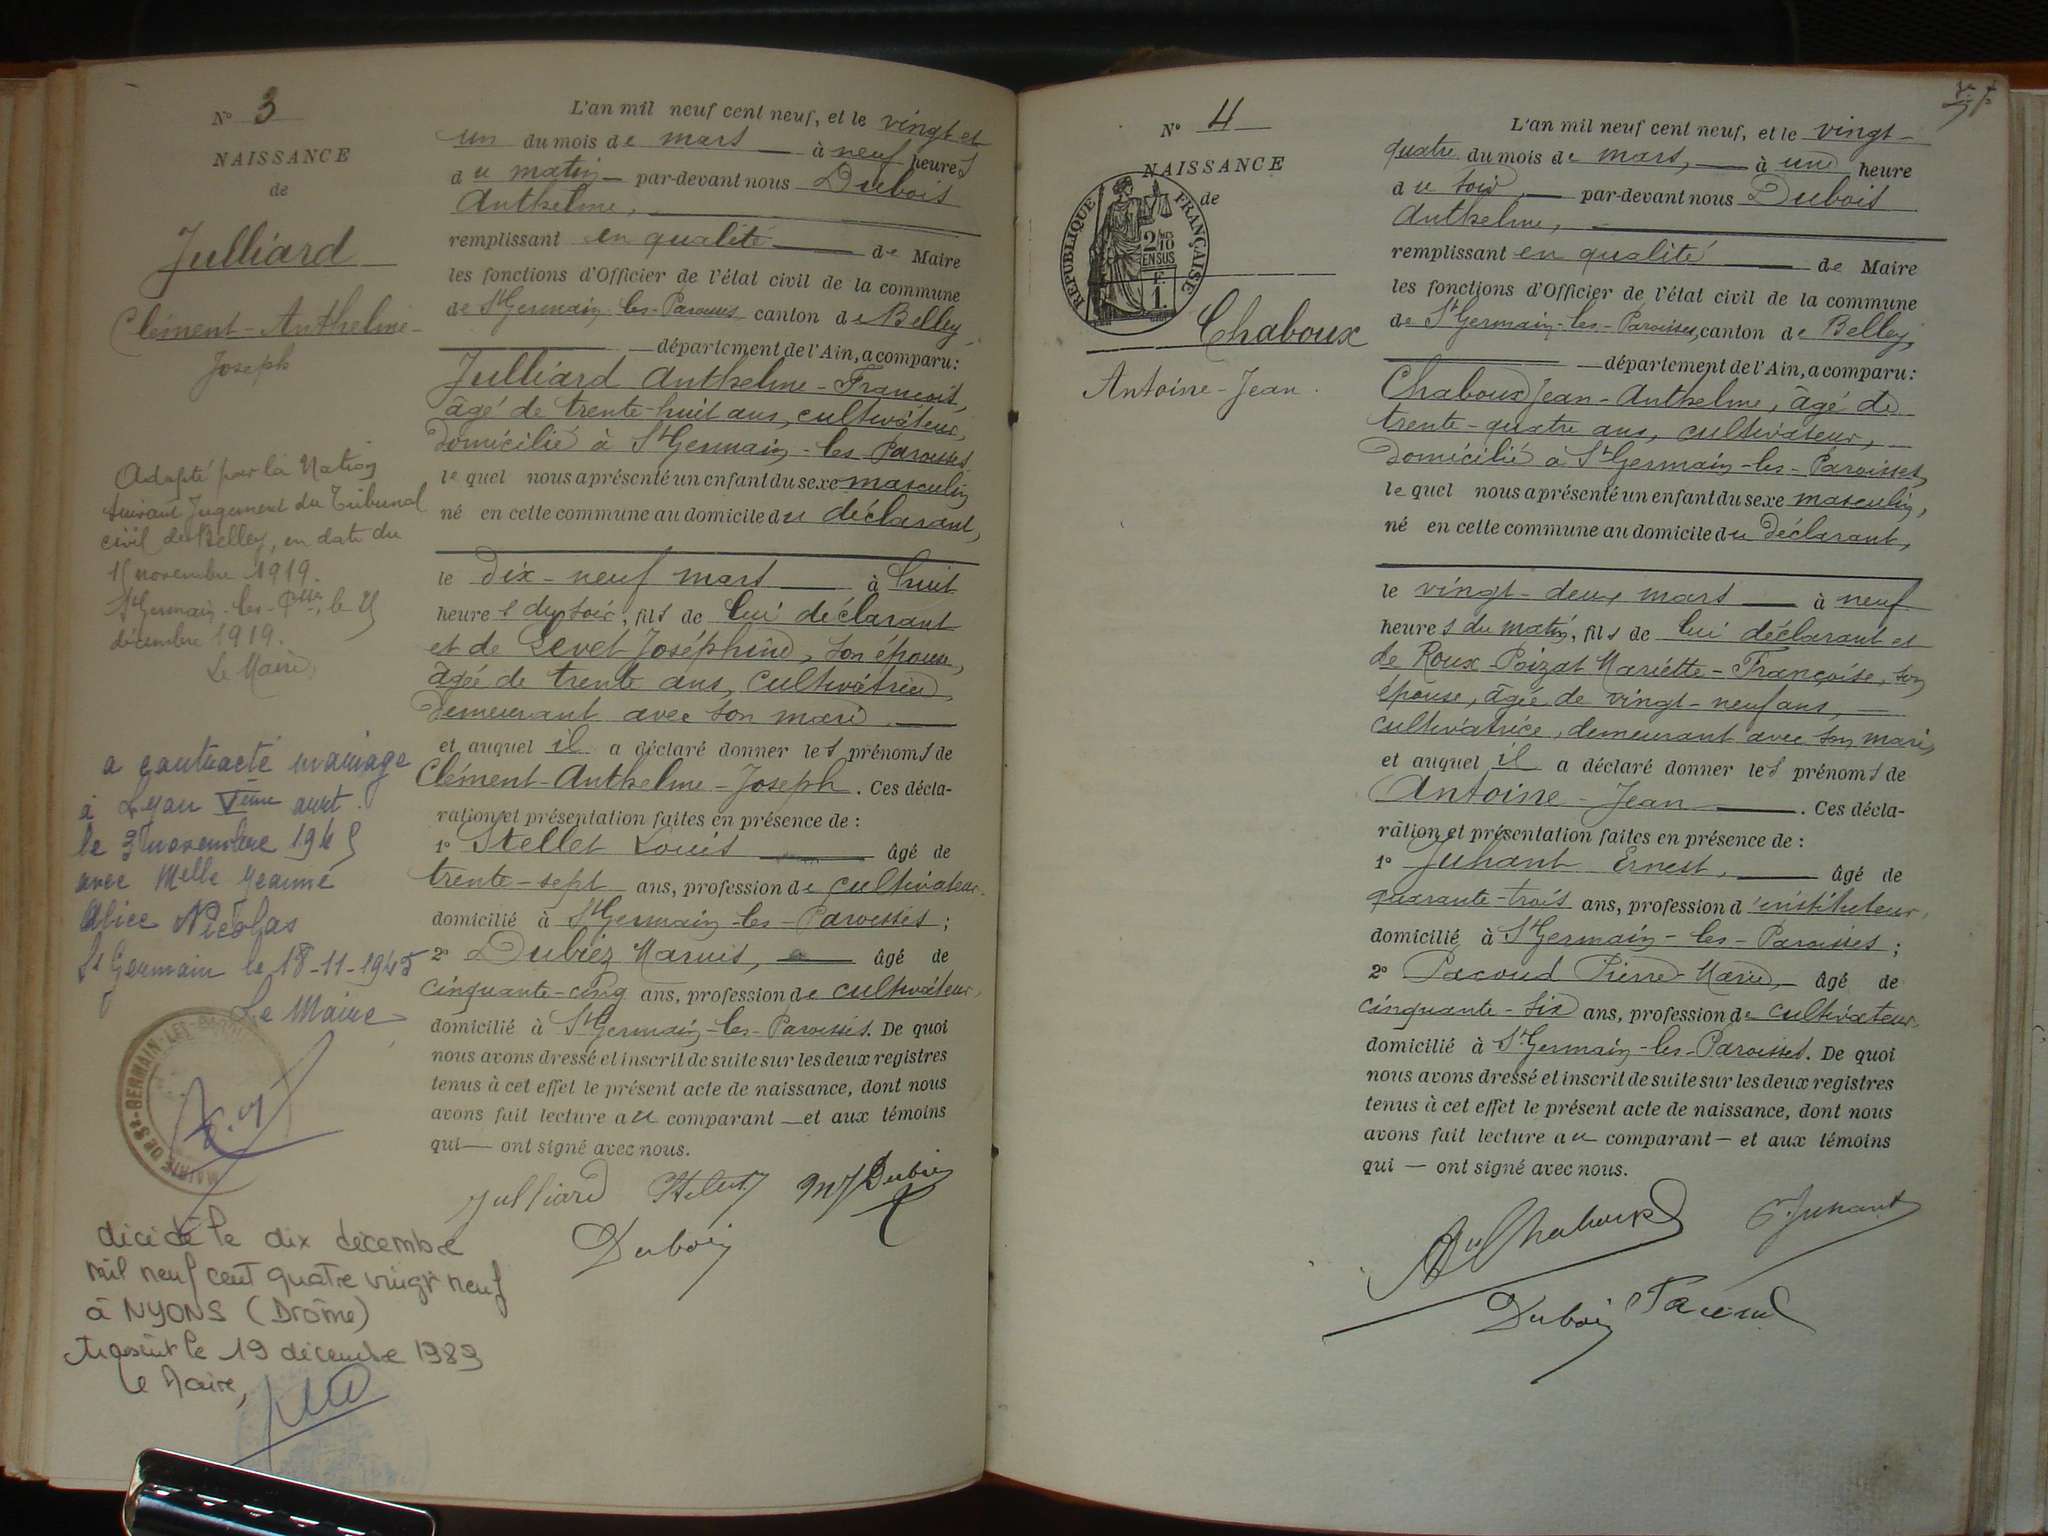 N° 3
NAISSANCE
de
Julliard
Clément-Anthelme-
Joseph
Adopté par la Nation
suivant Jugement du Tribunal
civil de Belley, en date du
novembre 1919.
St Germain-les-Psses, le
décembre 1919.
Le Maire,
a contracté mariage
à Lyon Vème arrt.
le 3 novembre 1945
avec Melle Jeanne
Alice Nicolas
St Germain le 18-11-1945
Le Maire,
MAIRIE DE St-GERMAIN-LES-PAROISSES
décédé le dix décembre
mil neuf cent quatre vingt neuf
à NYONS (Drôme)
transcrit le 19 décembre 1989
Le Maire,
L'an mil neuf cent neuf, et le vingt et
un du mois de mars — à neuf heures
du matin — par-devant nous Dubois
Anthelme,
remplissant en qualité — de Maire
les fonctions d'Officier de l'état civil de la commune
de St Germain-les-Paroisses canton de Belley,
— département de l'Ain, a comparu :
Julliard Anthelme-François,
âgé de trente-huit ans, cultivateur,
domicilié à St Germain-les Paroisses
lequel nous a présenté un enfant du sexe masculin
né en cette commune au domicile du déclarant,
le dix-neuf mars — à huit
heures du soir, fils de lui déclarant
et de Levet Joséphine, son épouse,
âgée de trente ans, cultivatrice,
demeurant avec son mari —
et auquel il a déclaré donner les prénoms de
Clément-Anthelme-Joseph. Ces décla-
ration et présentation faites en présence de :
1° Stellet Louis — âgé de
trente-sept ans, profession de cultivateur,
domicilié à St Germain-les-Paroisses ;
2° Dubiez Marius, — âgé de
cinquante-cinq ans, profession de cultivateur,
domicilié à St Germain-les-Paroisses. De quoi
nous avons dressé et inscrit de suite sur les deux registres
tenus à cet effet le présent acte de naissance, dont nous
avons fait lecture au comparant — et aux témoins
qui — ont signé avec nous.
Julliard Stellet Dubiez
Dubois
N° 4
NAISSANCE
de
REPUBLIQUE FRANÇAISE
2/10
EN SUS
F.
1.
Chaboux
Antoine-Jean.
L'an mil neuf cent neuf, et le vingt-
quatre du mois de mars, — à une heure
du soir, — par-devant nous Dubois
Anthelme,
remplissant en qualité — de Maire
les fonctions d'Officier de l'état civil de la commune
de St Germain-les-Paroisses, canton de Belley,
— département de l'Ain, a comparu :
Chaboux Jean-Anthelme, âgé de
trente-quatre ans, cultivateur,
domicilié à St Germain-les-Paroisses,
lequel nous a présenté un enfant du sexe masculin,
né en cette commune au domicile du déclarant,
le vingt-deux mars — à neuf
heures du matin, fils de lui déclarant et
de Roux-Poizat Mariette-Françoise, son
épouse, âgée de vingt-neuf ans,
cultivatrice, demeurant avec son mari,
et auquel il a déclaré donner les prénoms de
Antoine-Jean — . Ces décla-
ration et présentation faites en présence de :
1° Juhant Ernest, — âgé de
quarante-trois ans, profession d'instituteur,
domicilié à St Germain-les-Paroisses ;
2° Pacoud Pierre-Marie, — âgé de
cinquante-six ans, profession de cultivateur,
domicilié à St Germain-les-Paroisses. De quoi
nous avons dressé et inscrit de suite sur les deux registres
tenus à cet effet le présent acte de naissance, dont nous
avons fait lecture au comparant — et aux témoins
qui — ont signé avec nous.
Chaboux E. Juhant
Dubois Pacoud